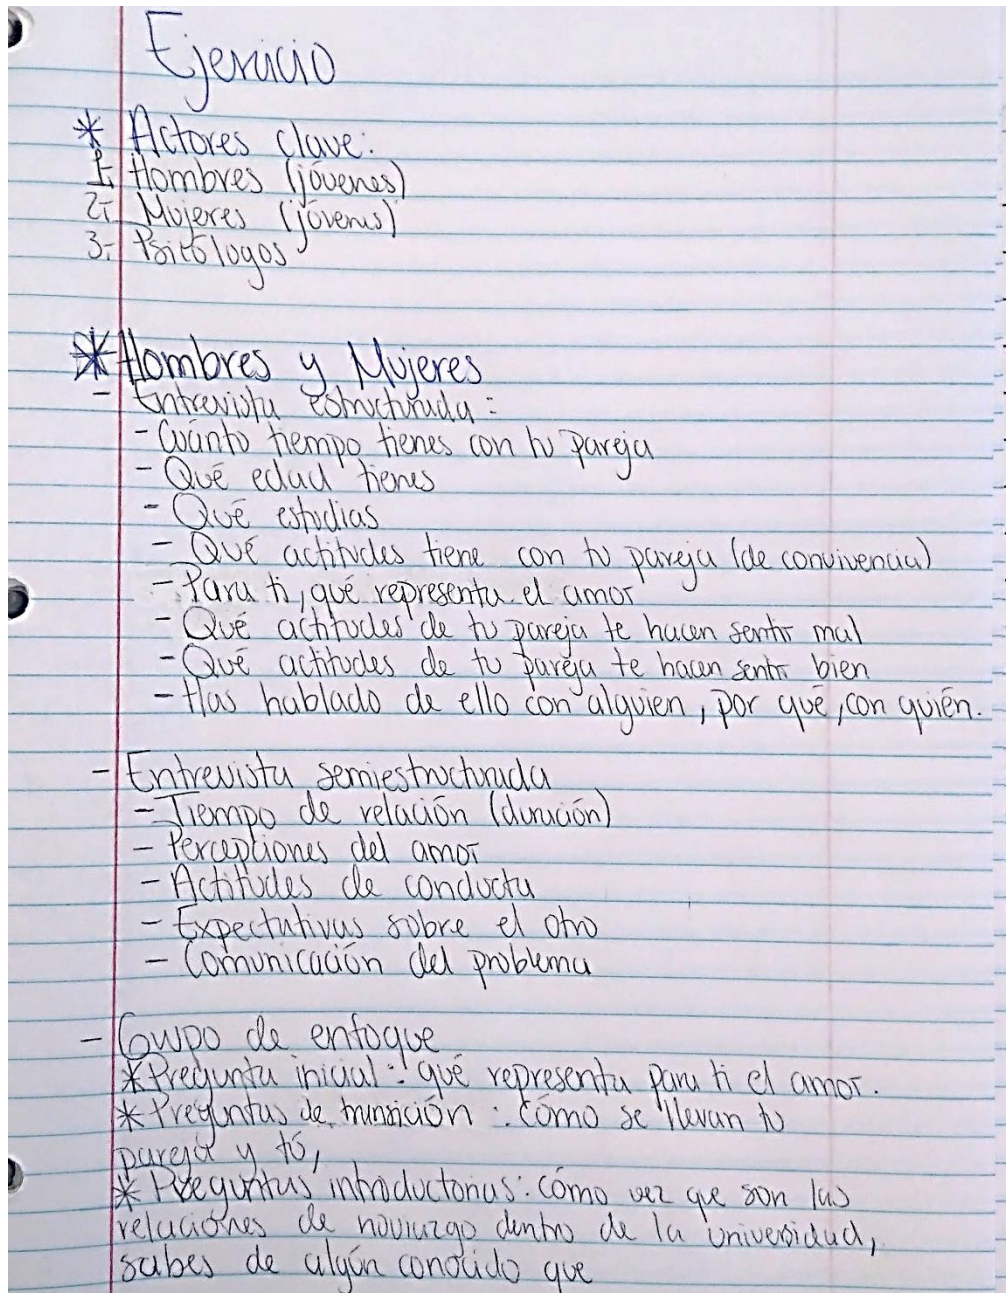 Ejericio
* Actores clave:
1.- Hombres (jóvenes)
2.- Mujeres (jóvenes)
3.- Psicólogos
* Hombres y Mujeres
- Entrevista estructurada:
- Cuánto tiempo tienes con tu pareja
- Qué edad tienes
- Qué estudias
- Qué actitudes tiene con tu pareja (de convivencia)
- Para ti, qué representa el amor
- Qué actitudes de tu pareja te hacen sentir mal
- Qué actitudes de tu pareja te hacen sentir bien
- Has hablado de ello con alguien, por qué, con quién.
- Entrevista semiestructurada
- Tiempo de relación (duración)
- Percepciones del amor
- Actitudes de conducta
- Expectativas sobre el otro
- Comunicación del problema
- Grupo de enfoque
* Pregunta inicial: qué representa para ti el amor.
* Preguntas de transición: cómo se llevan tu
pareja y tú,
* Preguntas introductorias: cómo vez que son las
relaciones de noviazgo dentro de la universidad,
sabes de algún conocido que